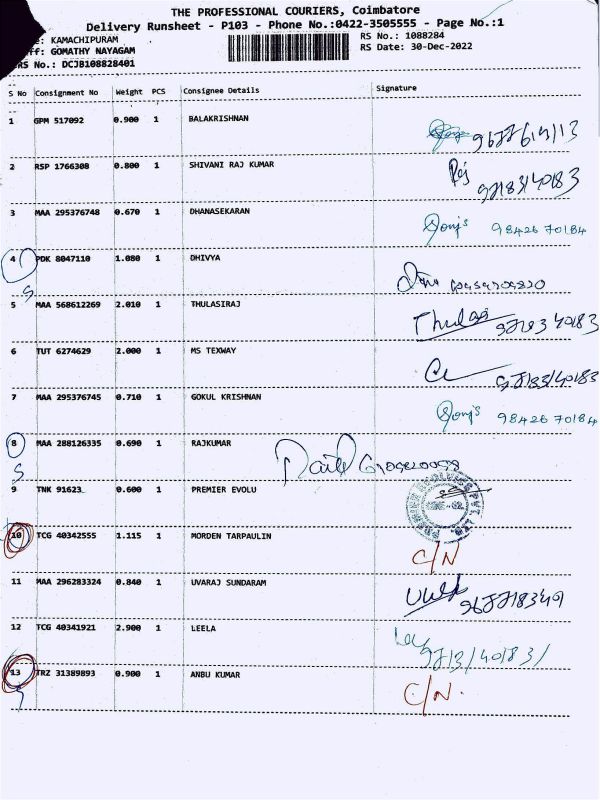 THE PROFESSIONAL COURIERS, Coimbatore
Delivery Runsheet - P103 - Phone No.:0422-3505555 - Page No.:1
: KAMACHIPURAM
RS No.: 1088284
ff: GOMATHY NAYAGAM
RS Date: 30-Dec-2022
RS No.: DCJB108828401
S No Consignment No Weight PCS Consignee Details Signature
1 GPM 517092 0.900 1 BALAKRISHNAN
2 RSP 1766308 0.800 1 SHIVANI RAJ KUMAR Raj
3 MAA 295376748 0.670 1 DHANASEKARAN 98426 70184
4 PDK 8047110 1.080 1 DHIVYA
5 MAA 568612269 2.010 1 THULASIRAJ
6 TUT 6274629 2.000 1 MS TEXWAY
7 MAA 295376745 0.710 1 GOKUL KRISHNAN 98426 70184
8 MAA 288126335 0.690 1 RAJKUMAR
9 TNK 91623 0.600 1 PREMIER EVOLU
10 TCG 40342555 1.115 1 MORDEN TARPAULIN C/N
11 MAA 296283324 0.840 1 UVARAJ SUNDARAM
12 TCG 40341921 2.900 1 LEELA
13 TRZ 31389893 0.900 1 ANBU KUMAR C/N.